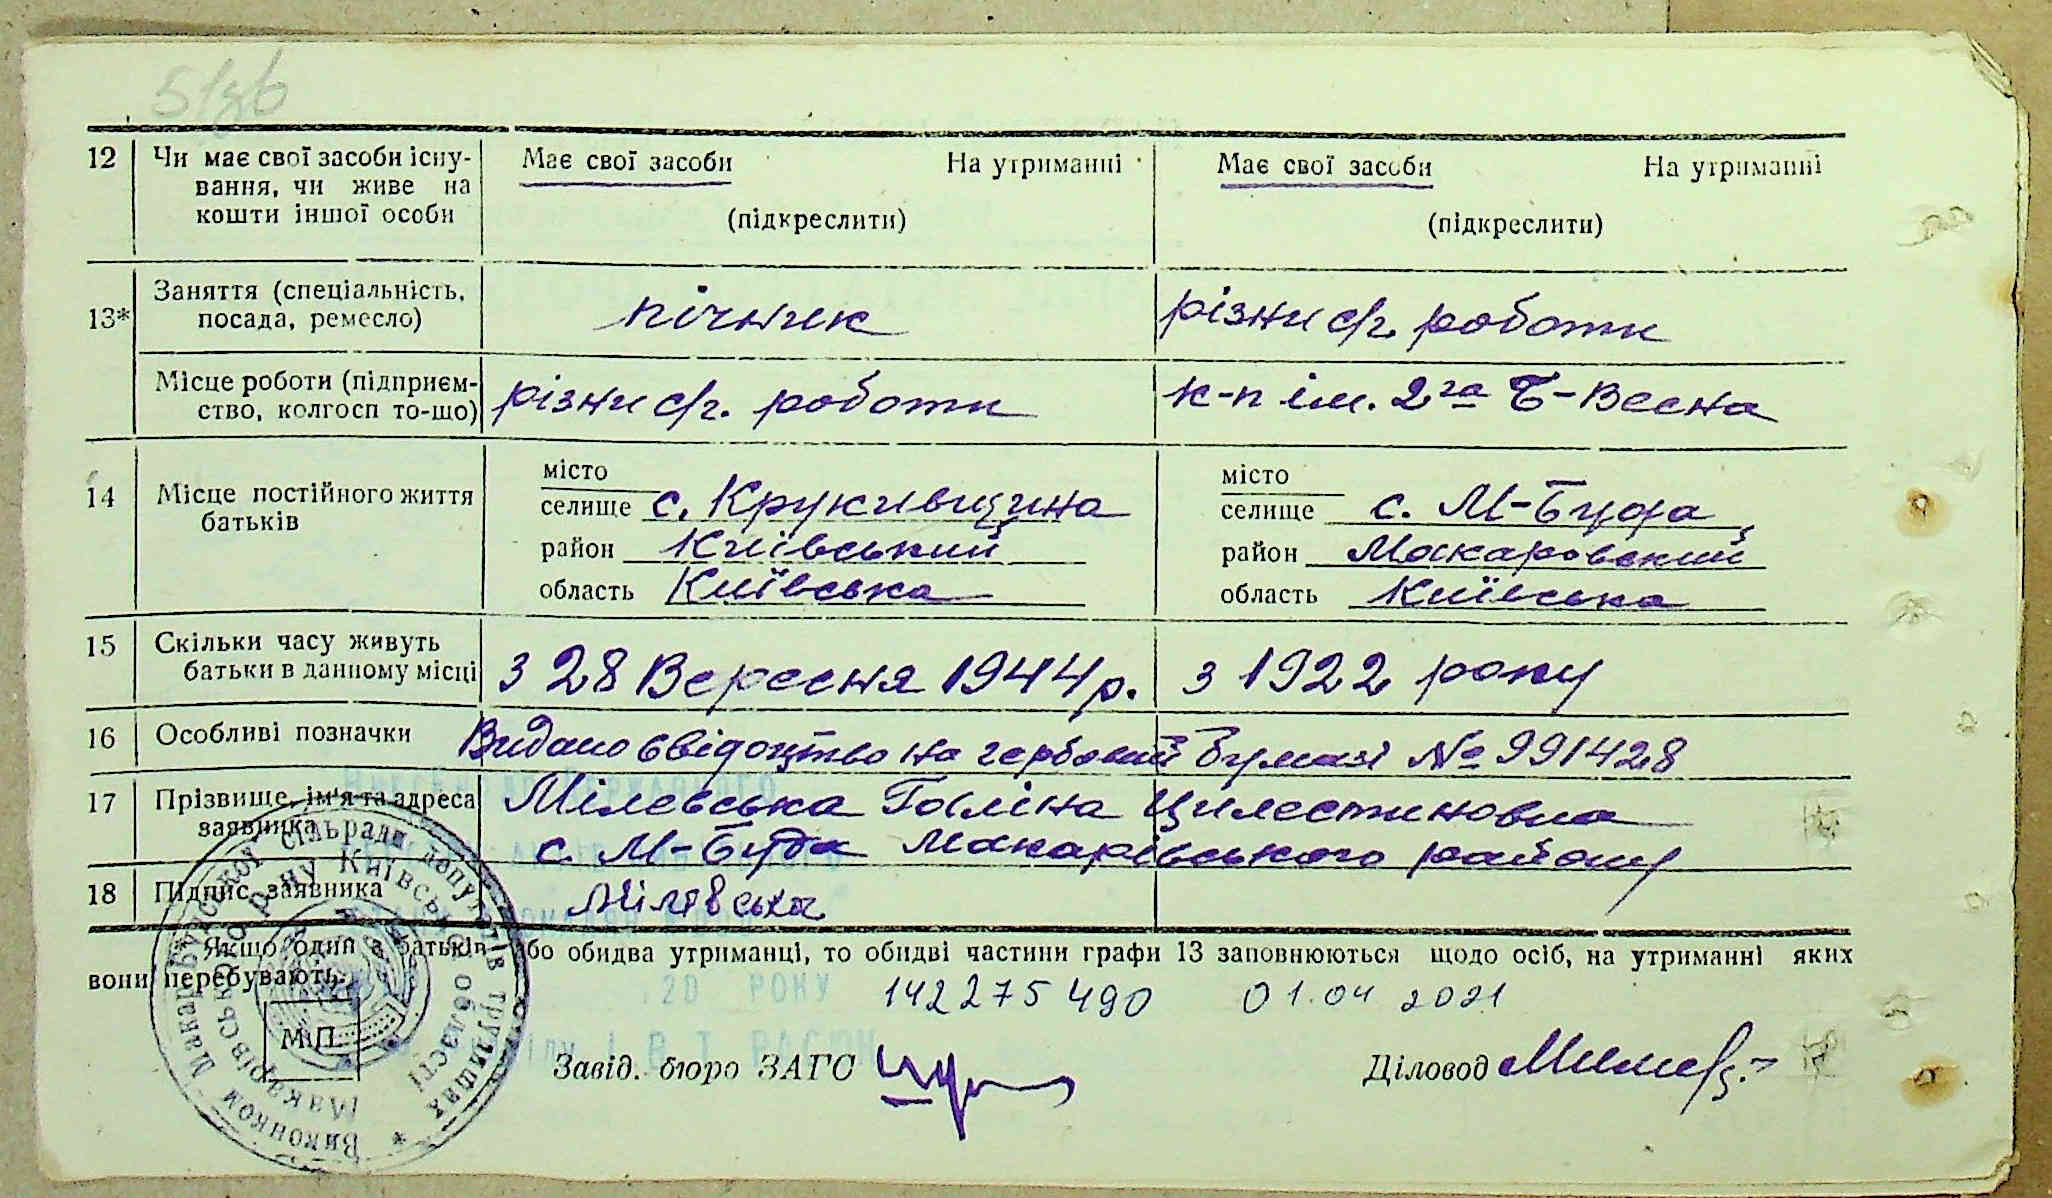 51зв
12 Чи має свої засоби існу- Має свої засоби На утриманні Має свої засоби На утриманні
вання, чи живе на
кошти іншої особи (підкреслити) (підкреслити)
13* Заняття (спеціальність, посада, ремесло) пічник різни с/г. роботи
Місце роботи (підприєм-
ство, колгосп то-що) різни с/г. роботи к-п ім. 2га Б-Весна
14 Місце постійного життя
батьків
місто
селище с. Крукивщина
район Київський
область Київська
місто
селище с. М-Буда
район Макаровский
область Київська
15 Скільки часу живуть
батьки в данному місці з 28 Вересня 1944 р. з 1922 року
16 Особливі позначки Видано свідоцтво на гербовій бумазі № 991428
17 Прізвище, ім'я та адреса Мілевська Галіна Цилестиновна
заявника с. М-Буда Макарівського району
18 Підпис заявника Мілевська
* Якщо один з батьків або обидва утриманці, то обидві частини графи 13 заповнюються щодо осіб, на утриманні яких
вони перебувають.
20 РОКУ
142275490 01.04 2021
М.П.
Завід. бюро ЗАГС Діловод
Виконком Макар-Бурської сільради депутатів трудящих
Макарівського р-ну Київської області